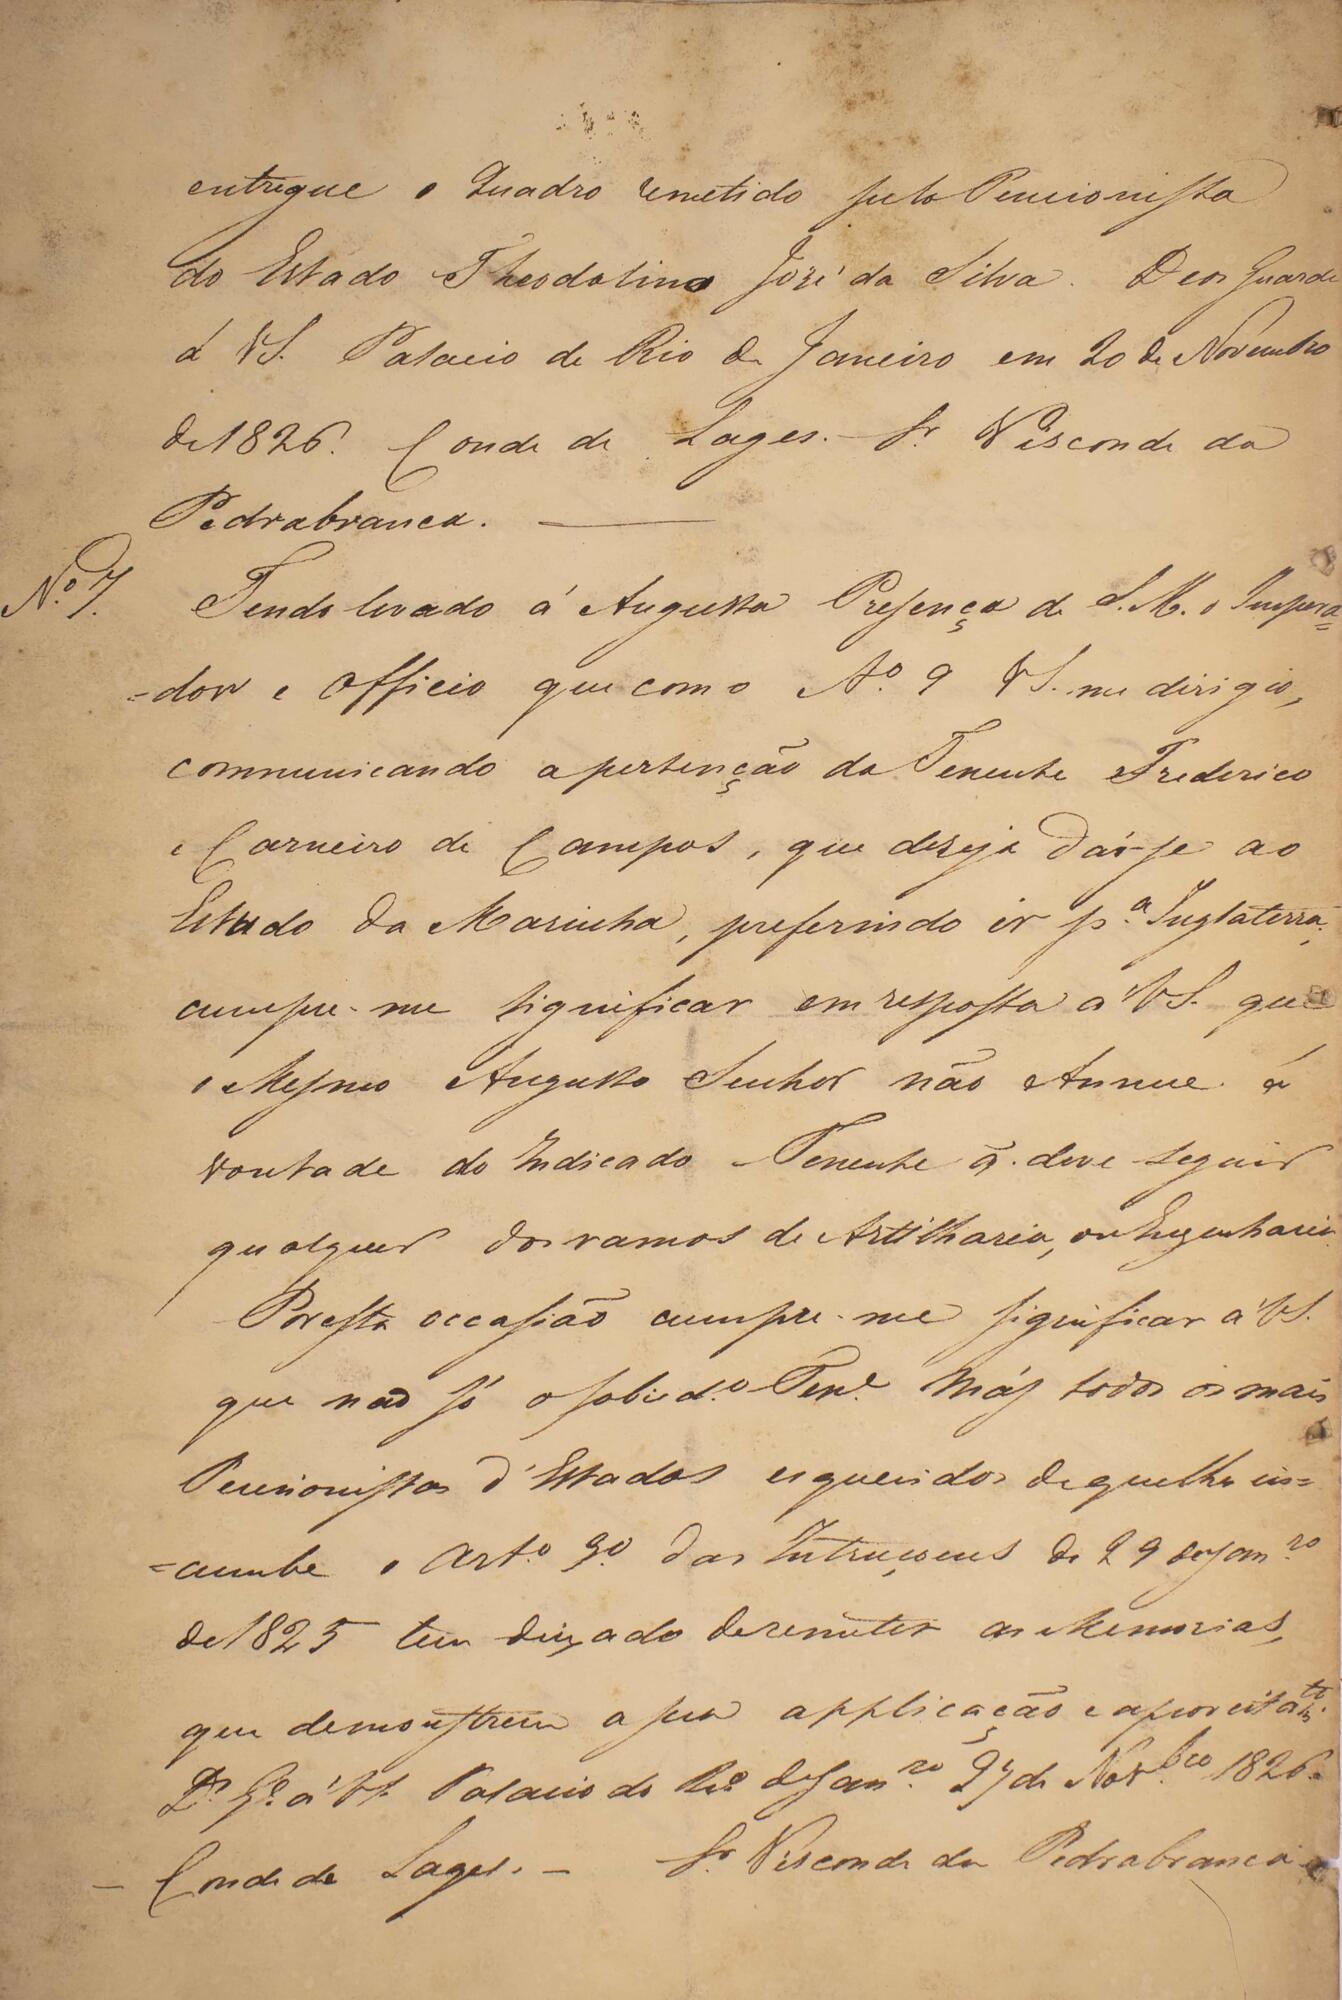 entregue o Quadro remetido pelo Pencionista
do Estado Theodolino José da Silva. Deos Guarde
á VS. Palacio do Rio de Janeiro em 20 de Novembro
de 1826. Conde de Lages. — Sr. Visconde da
Pedrabranca. —
Nº 7. Tendo levado á Augusta Presença de S. M. o Impera=
=dor o Officio que com o Nº 9 VS. me dirigio,
communicando a pertenção do Tenente Frederico
Carneiro de Campos, que deseja dár-se ao
Estudo da Marinha, preferindo ir pª Inglaterra,
cumpre-me significar em resposta a VS. que
o Mesmo Augusto Senhor não Annue á
vontade do Indicado Tenente q̃ deve seguir
qualquer dos ramos de Artilharia, ou Engenharia
Por esta occasião cumpre-me significar a VS.
que nao só o sobredº Tenᵉ más todos os mais
Pencionistas d'Estados esquecidos do que lhe in=
=cumbe o Artº 3º das Intruçoens de 29 de Janʳᵒ
de 1825 tem deixado de remeter as Memorias,
que demonstrem a sua applicação e aproveitamᵗᵒ.
Dˢ Gᵉ a VS. Palacio do Rio de Janʳᵒ 27 de Novᵇʳᵒ 1826.
— Conde de Lages. — Sr. Visconde da Pedrabranca